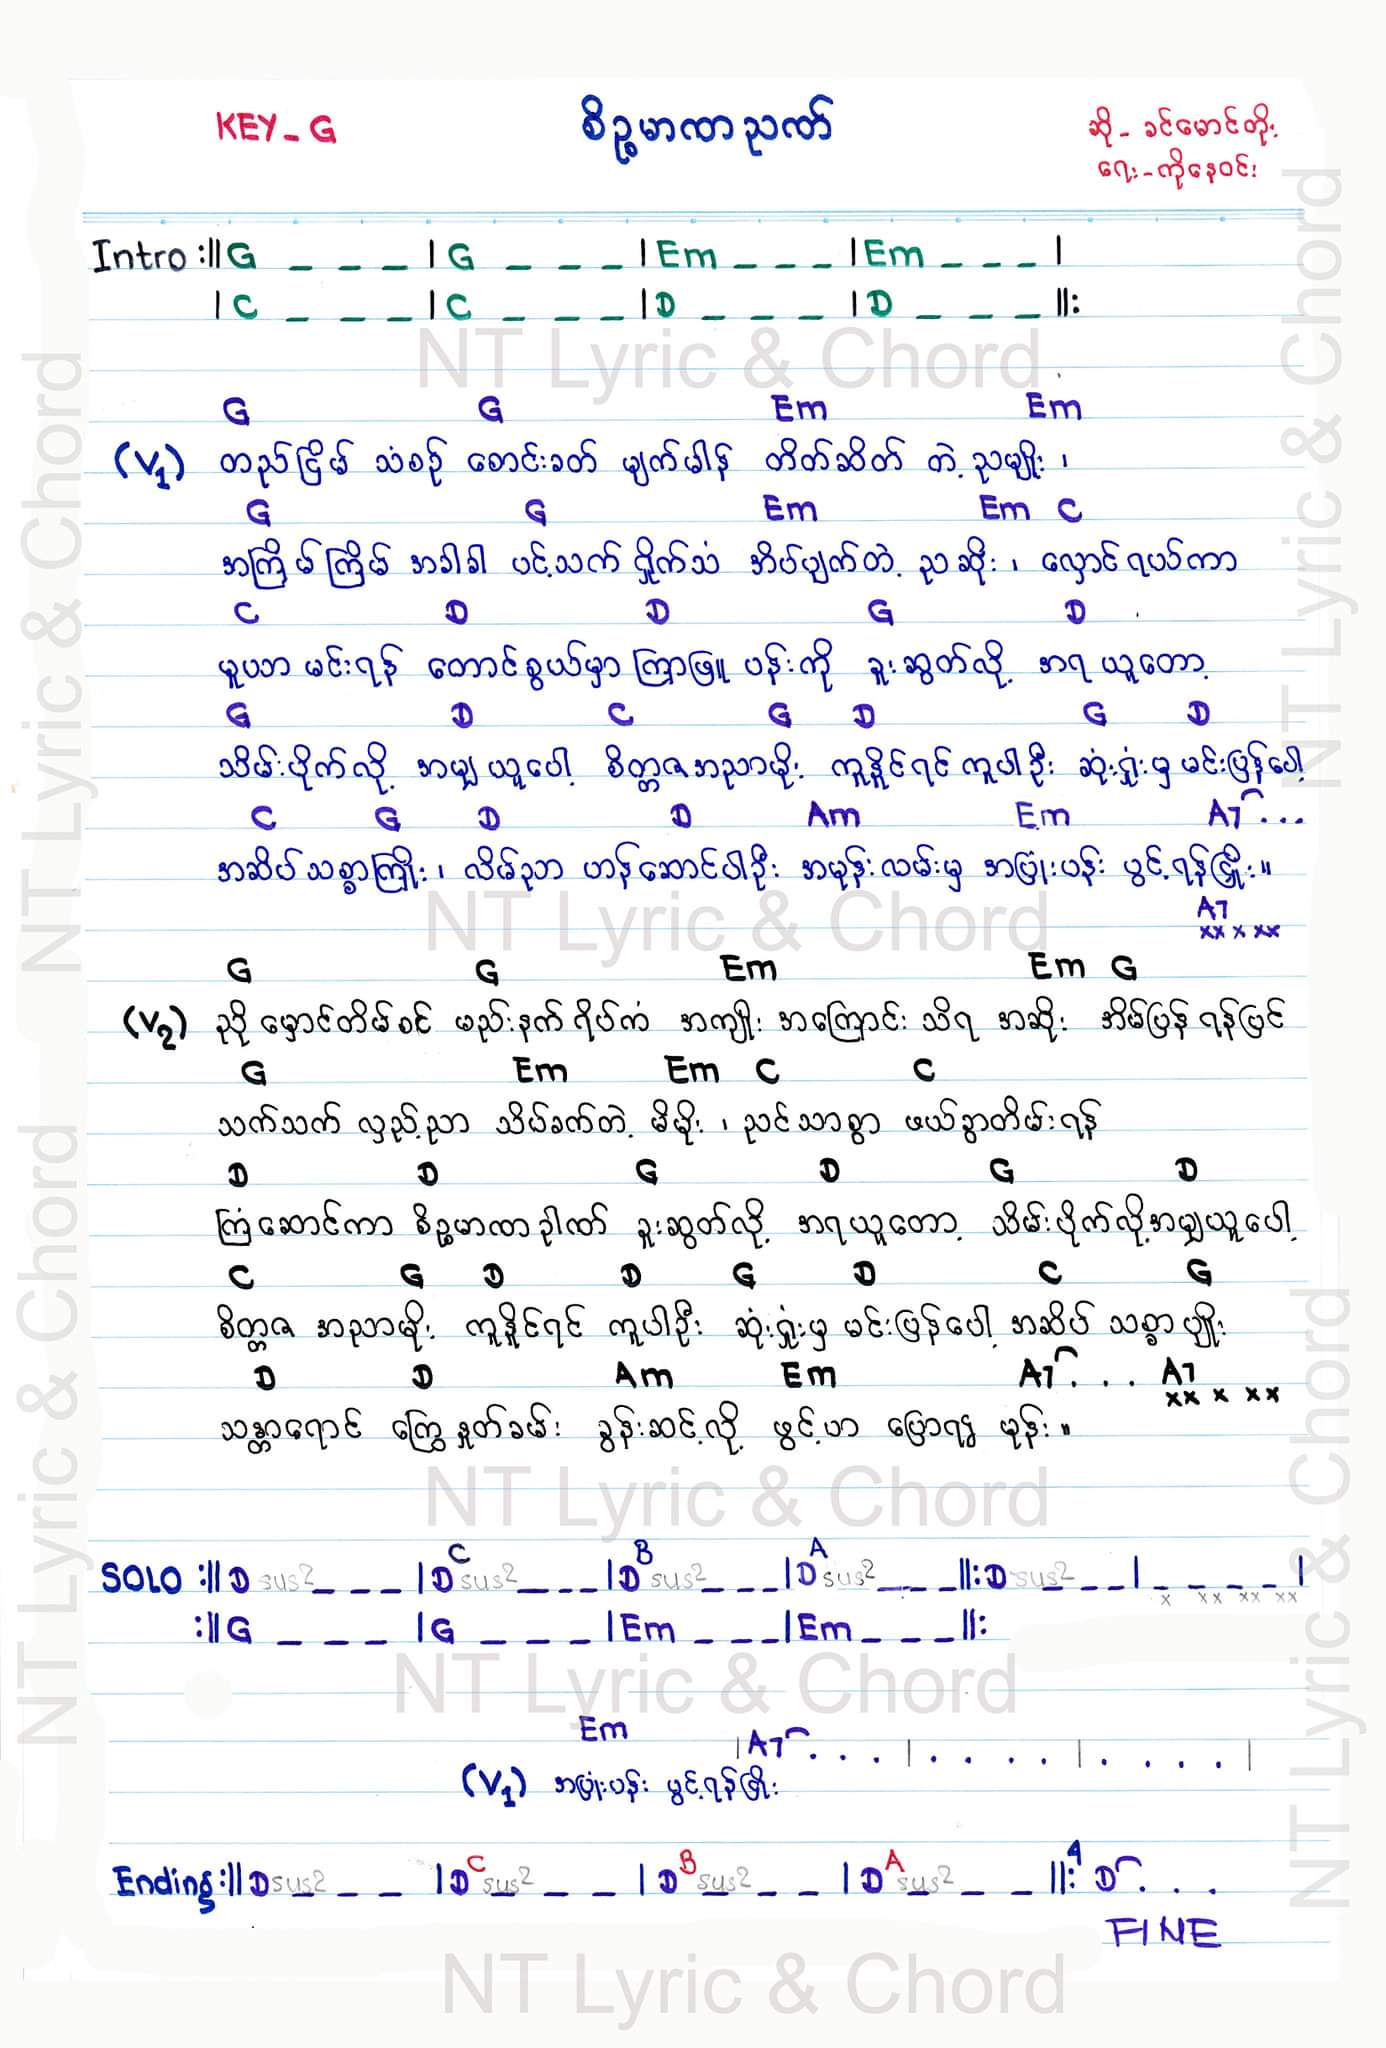 KEY - G
စိဥ္စမာဏာညဏ်
ဆို - ခင်မောင်တိုး
ရေး - ကိုနေဝင်း
Intro :|| G _ _ _ | G _ _ _ | Em _ _ _ | Em _ _ _ |
| C _ _ _ | C _ _ _ | D _ _ _ | D _ _ _ ||:
NT Lyric & Chord
G G Em Em
(V1) တည်ငြိမ် သံစဉ် စောင်းခတ် မျက်မါန် တိတ်ဆိတ် တဲ့ ညမျိုး ၊
G G Em Em C
အကြိမ်ကြိမ် အခါခါ ပင့်သက် ရှိုက်သံ အိပ်ပျက်တဲ့ ညဆိုး ၊ လှောင်ရယ်ကာ
C D D G D
မူပဘ မင်းရန် တောင်စွယ်မှာ ကြာဖြူ ပန်းကို ခူးဆွတ်လို့ အရ ယူတော့
G D C G D G D
သိမ်းပိုက်လို့ အမျှ ယူပေါ့ စိတ္တဇအညာမိုး ကူနိုင်ရင် ကူပါဦး ဆုံးရှုံးမှ မင်းပြန်ပေါ့
C G D D Am Em A7 . . .
အဆိပ် သစ္စာကြိုး ၊ လိမ်ညာ ဟန်ဆောင်ပါဦး အမုန်းလမ်းမှ အပြုံးပန်း ပွင့်ရန်ငြှိုး ။
NT Lyric & Chord
A7
xx x xx
G G Em Em G
(V2) ညို့ မှောင်တိမ်စင် မည်းနက် ရိပ်ကံ အကျိုး အကြောင်း သိရ အဆိုး အိမ်ပြန် ရန်ပြင်
G Em Em C C
သက်သက် လှည့်ညာ သိပ်ခက်တဲ့ မိမိုး ၊ ညင်သာစွာ ဖယ်ခွာတိမ်းရန်
D D G D G D
ကြံဆောင်ကာ စိဥ္စမာဏာဉာဏ် ခူးဆွတ်လို့ အရယူတော့ သိမ်းပိုက်လို့ အမျှယူပေါ့
C G D D G D C G
စိတ္တဇ အညာမိုး ကူနိုင်ရင် ကူပါဦး ဆုံးရှုံးမှ မင်းပြန်ပေါ့ အဆိပ် သစ္စာပျိုး
D D Am Em A7 . . . A7
xx x xx
သန္တာရောင် ကြွေ နှုတ်ခမ်း ခွန်းဆင့်လို့ ဖွင့်ဟာ ပြောရန် မုန်း ။
NT Lyric & Chord
SOLO :|| D sus2 _ _ _ | D C sus2 _ _ _ | D B sus2 _ _ _ | D A sus2 _ _ _ ||: D sus2 _ _ _ | _ _ _ _ |
x xx xx xx
:|| G _ _ _ | G _ _ _ | Em _ _ _ | Em _ _ _ ||:
NT Lyric & Chord
Em | A7 . . . | . . . . | . . . . |
(V1) အပြုံးပန်း ပွင့်ရန်ငြှိုး
Ending :|| D sus2 _ _ _ | D C sus2 _ _ _ | D B sus2 _ _ _ | D A sus2 _ _ _ ||: 4 D . . .
FINE
NT Lyric & Chord
NT Lyric & Chord
NT Lyric & Chord
NT Lyric & Chord
NT Lyric & Chord